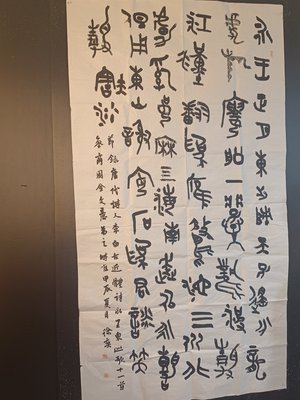 永王正月東出師天子遙分龍
虎旗樓船一舉風波靜
江漢翻為雁鶩池三川北
虜亂如麻四海南奔似永嘉
但用東山謝安石為君談笑
靜胡沙
節錄唐代詩人李白古近體詩永王東巡歌十一首
參商周金文意為之時在甲辰夏月徐